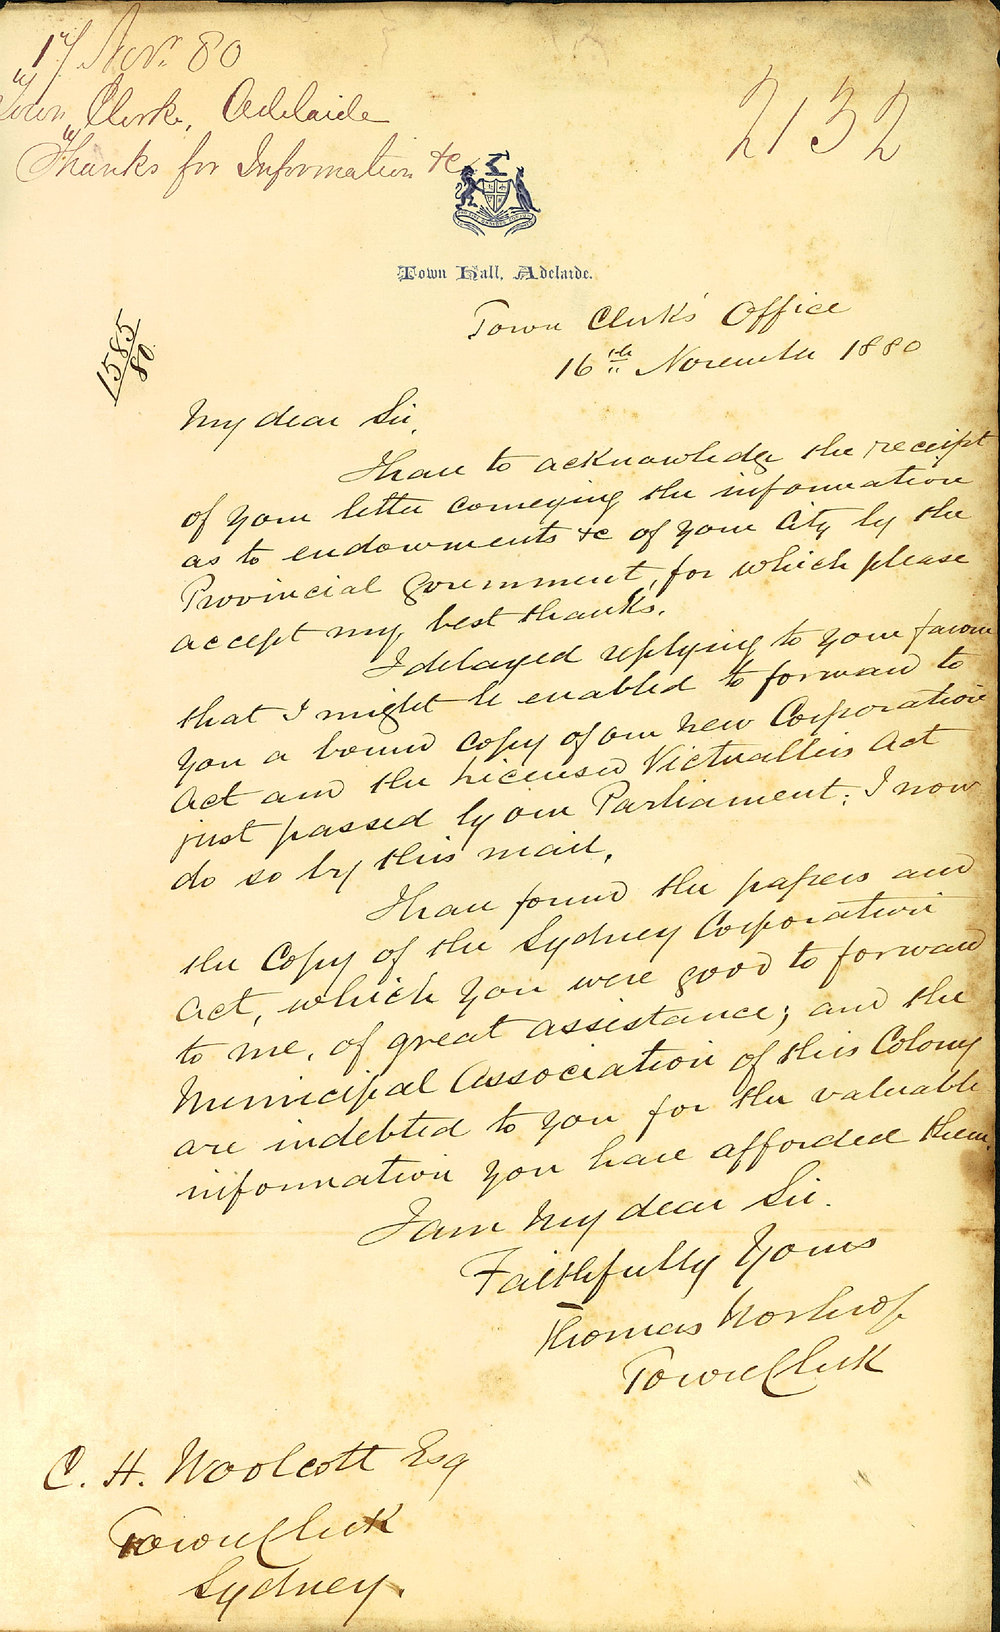 17 Novr. 80
Town Clerk, Adelaide
Thanks for Information &c
2132
Town Hall, Adelaide.
1585
80
Town Clerk's Office
16th November 1880
My dear Sir,
I have to acknowledge the receipt
of your letter conveying the information
as to endowments &c of your City by the
Provincial Government, for which please
accept my best thanks.
I delayed replying to your favour
that I might be enabled to forward to
you a bound copy of our new Corporation
Act and the Licensed Victuallers Act
just passed by our Parliament; I now
do so by this mail.
I have found the papers and
the Copy of the Sydney Corporation
Act, which you were good to forward
to me, of great assistance; and the
Municipal Association of this Colony
are indebted to you for the valuable
information you have afforded them.
I am My dear Sir.
Faithfully Yours
Thomas Worsnop
Town Clerk
C. H. Woolcott Esq
Town Clerk
Sydney.